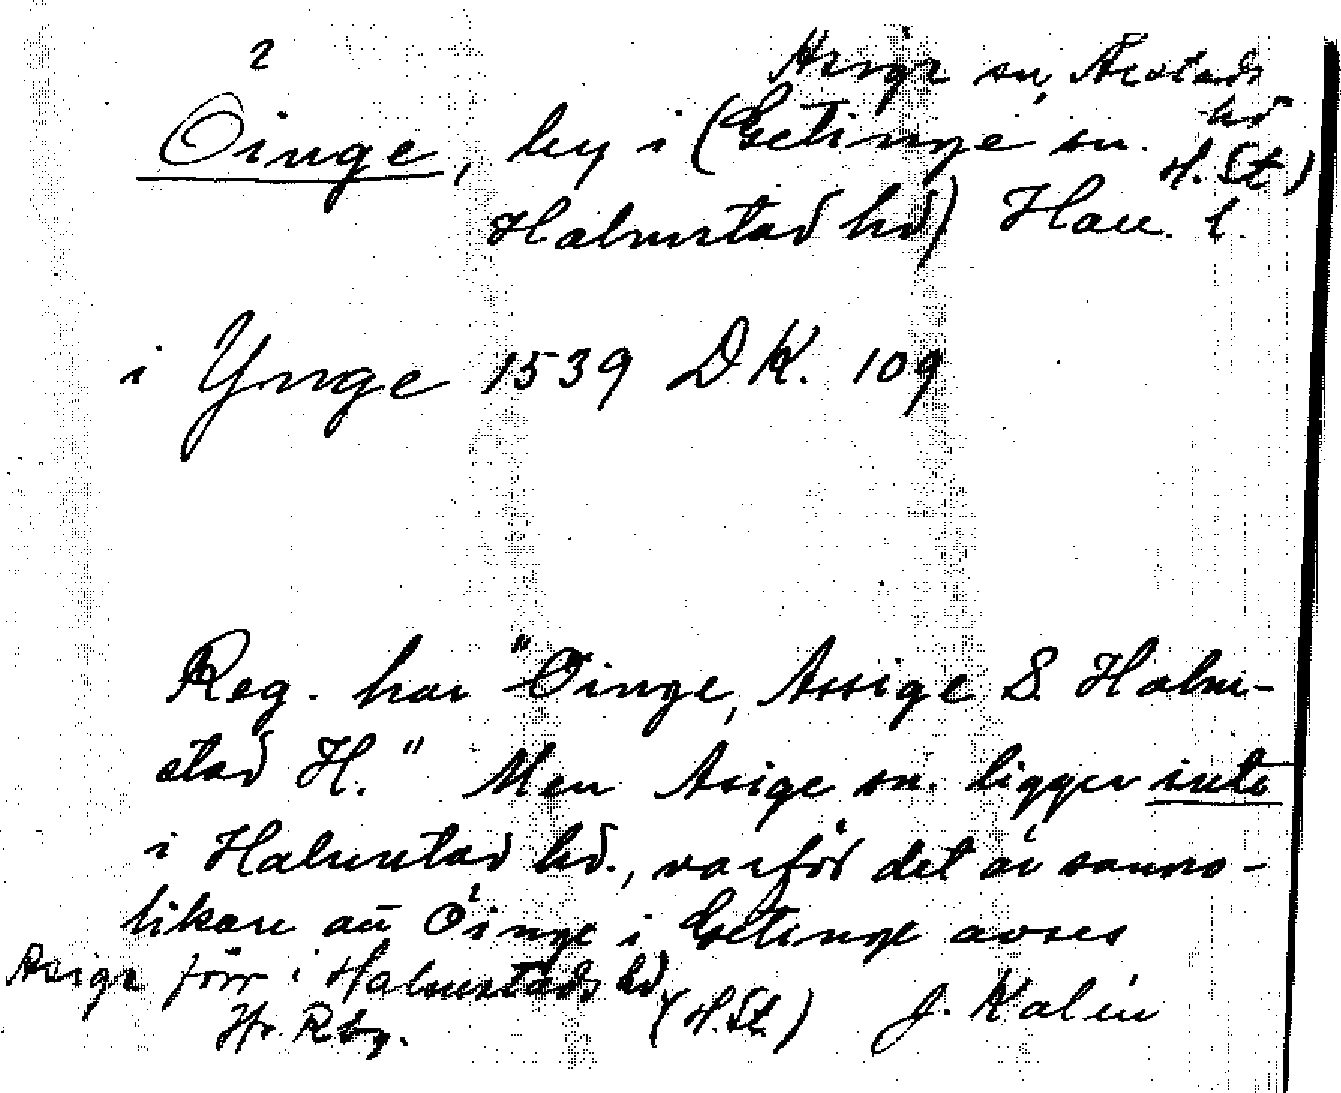 ?
Asige sn, Årstads
hd
Öinge, by i (Getinge sn.
H. St)
Halmstad hd) Hall. l.
i Ynge 1539 D.K. 109
Reg. har "Öinge, Assige S. Halm-
stad H." Men Asige sn. ligger inte
i Halmstad hd., varför det är sanno-
likare att Öinge i Getinge avses
Asige förr i Halmstads hd
(H.St.) J. Kalén
Hr. Rbg.